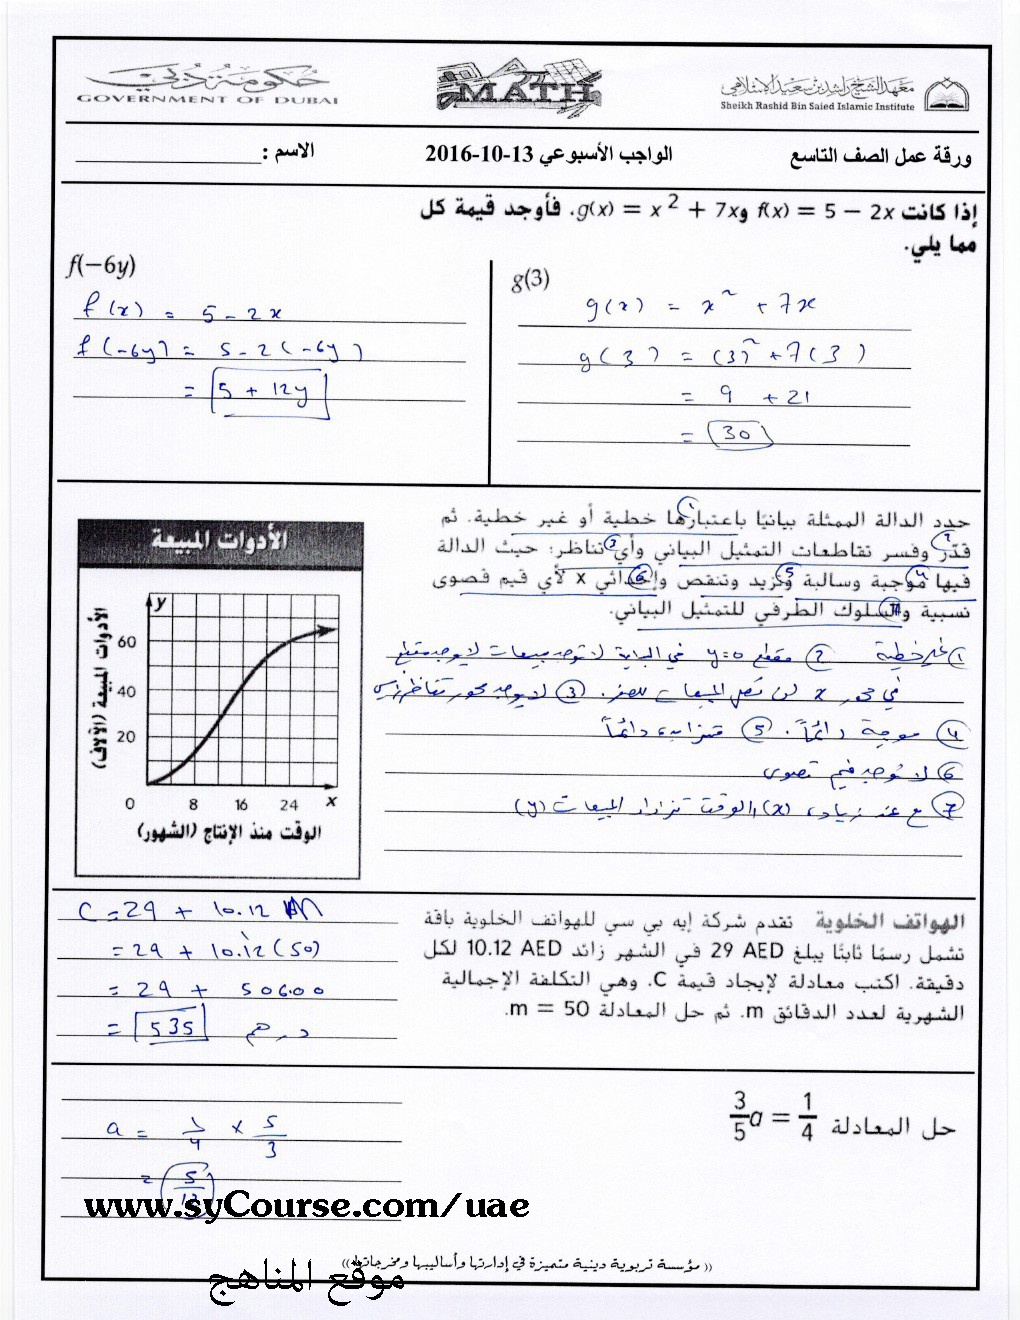 حكومة دبي
GOVERNMENT OF DUBAI
MATH
معهد الشيخ راشد بن سعيد الإسلامي
Sheikh Rashid Bin Saied Islamic Institute
ورقة عمل الصف التاسع
الواجب الأسبوعي 13-10-2016
الاسم :
إذا كانت f(x) = 5 − 2x و g(x) = x² + 7x، فأوجد قيمة كل
مما يلي.
g(3)
g(x) = x² + 7x
g(3) = (3)² + 7(3)
= 9 + 21
= 30
f(−6y)
f(x) = 5 - 2x
f(-6y) = 5 - 2(-6y)
= 5 + 12y
حدد الدالة الممثلة بيانيًا باعتبارها خطية أو غير خطية. ثم
قدّر وفسر تقاطعات التمثيل البياني وأي تناظر؛ حيث الدالة
فيها موجبة وسالبة وتزيد وتنقص وإحداثي x لأي قيم قصوى
نسبية والسلوك الطرفي للتمثيل البياني.
1 2 3 4 5 6 7
① غير خطية ② مقطع y=0 في البداية لا توجد مبيعات لا يوجد مقطع
في محور x لن تصل المبيعات للصفر. ③ لا يوجد محور تناظر
④ موجبة دائماً. ⑤ متزايدة دائماً
⑥ لا توجد قيم قصوى
⑦ مع عند زيادة (x) الوقت تزداد المبيعات (y)
الأدوات المبيعة
الأدوات المبيعة (الآلاف)
y
60
40
20
0 8 16 24 x
الوقت منذ الإنتاج (الشهور)
الهواتف الخلوية تقدم شركة إيه بي سي للهواتف الخلوية باقة
تشمل رسمًا ثابتًا يبلغ 29 AED في الشهر زائد 10.12 AED لكل
دقيقة. اكتب معادلة لإيجاد قيمة C، وهي التكلفة الإجمالية
الشهرية لعدد الدقائق m. ثم حل المعادلة m = 50.
C = 29 + 10.12 m
= 29 + 10.12 (50)
= 29 + 506.00
= 535 درهم
حل المعادلة 3/5 a = 1/4
a = 1/4 × 5/3
= 5/12
www.syCourse.com/uae
(( مؤسسة تربوية دينية متميزة في إدارتها وأساليبها ومخرجاتها ))
موقع المناهج